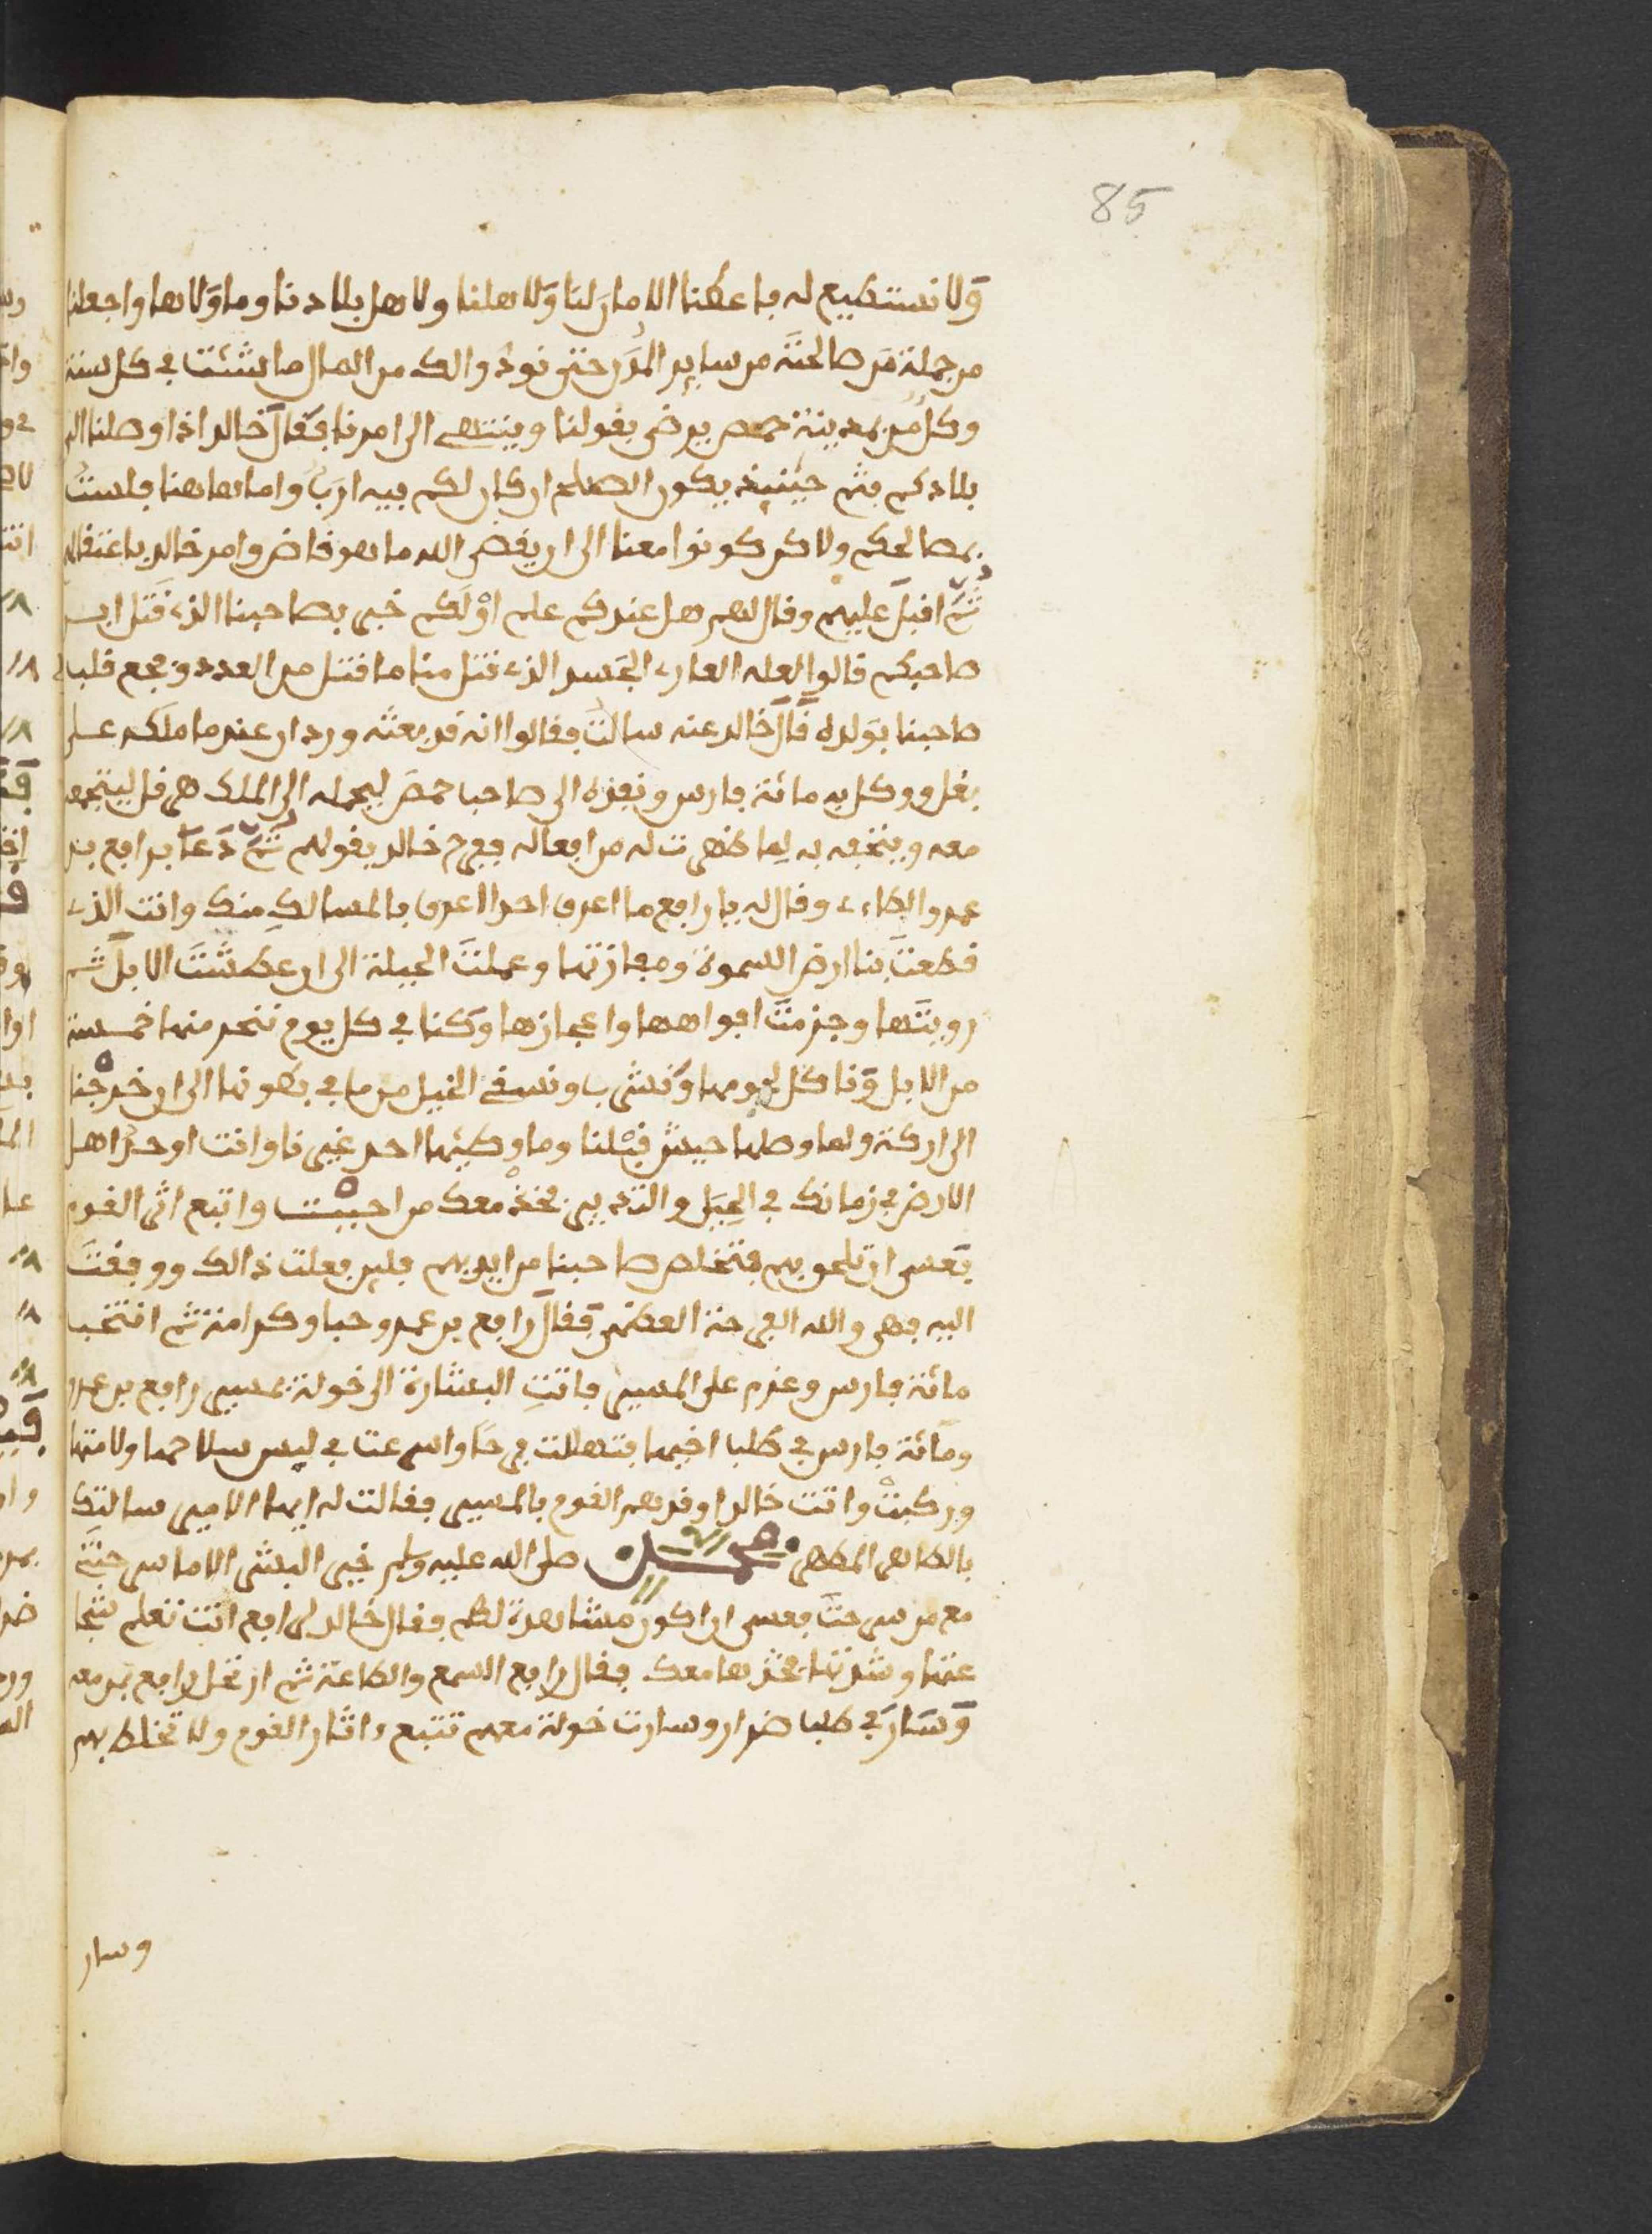 85
ولا نستطيع له فاعطنا الامان لنا ولاهلنا ولاهل بلادنا وما والاها واجعلنا
من جملة من صالحته من ساير المدن حتى نود والك من المال ما شئت في كل سنة
وكل من بمدينة حمص يرضى بقولنا وينتهى الى امرنا فقال خالد اذا وصلنا الى
بلادكم فثم حينيذ يكون الصلح ان كان لكم فيه ارب واما هاهنا فلست
بمصالحكم ولاكن كونوا معنا الى ان يقضى الله ما هو قاض وامر خالد باعتقالهم
ثم اقبل عليهم وقال لهم هل عندكم علم اولكم خبر بصاحبنا الذى قتل ابن
صاحبكم قالوا لعله العارى الجسد الذى قتل منا ما قتل من العدد وفجع قلب
صاحبنا بولده قال خالد عنه سالت فقالوا انه قد بعثه وردان عند ما ملكه على
بغل ووكل به مائة فارس ونفذه الى صاحب حمص ليحمله الى الملك هرقل ليتجمع
معه ويتحفه به لما ظهرت له من افعاله ففرح خالد بقولهم ثم دعا برافع بن
عمرو الطاءى وقال له يا رافع ما اعرف احدا اعرف بالمسالك منك وانت الذى
قطعت بنا ارض السموة ومفازتها وعملت الحيلة الى ان عطشت الابل ثم
رويتها وجزمت افواهها واعجازها وكنا في كل يوم ننحر منها خمسة
من الابل وناكل لحومها ونشرب ونسقى الخيل من ما في بطونها الى ان خرجنا
الى اركة ولما وصلها جيش قبلنا وما وطيها احد غيرنا وانت اوحد اهل
الارض في زمانك في الحيل والتدبير فخذ معك من احببت واتبع اثر القوم
فعسى ان تلحق بهم فتخلص صاحبنا من ايديهم فلين فعلت ذالك ووفقت
اليه فهى والله الفرحة العظمى فقال رافع بن عمرو حبا وكرامة ثم انتخب
مائة فارس وعزم على المسير فاتت البشارة الى خولة بمسير رافع بن عمرو
ومائة فارس في طلب اخيها فتهللت فرحا واسرعت في لبس سلاحها ولامتها
وركبت واتت خالدا وقد هم القوم بالمسير فقالت له ايها الامير سالتك
بالطاهر المطهر محمد صلى الله عليه وسلم خير البشر الا ما سرحتنى
مع من سرحت فعسى ان اكون مشاهدة لهم فقال خالد لرافع انت تعلم شجا
عتها وشدتها فخذها معك فقال رافع السمع والطاعة ثم ارتحل رافع بمن معه
وسار في طلب ضرار وسارت خولة معهم تتبع ءاثار القوم ولا تختلط بهم
وسار